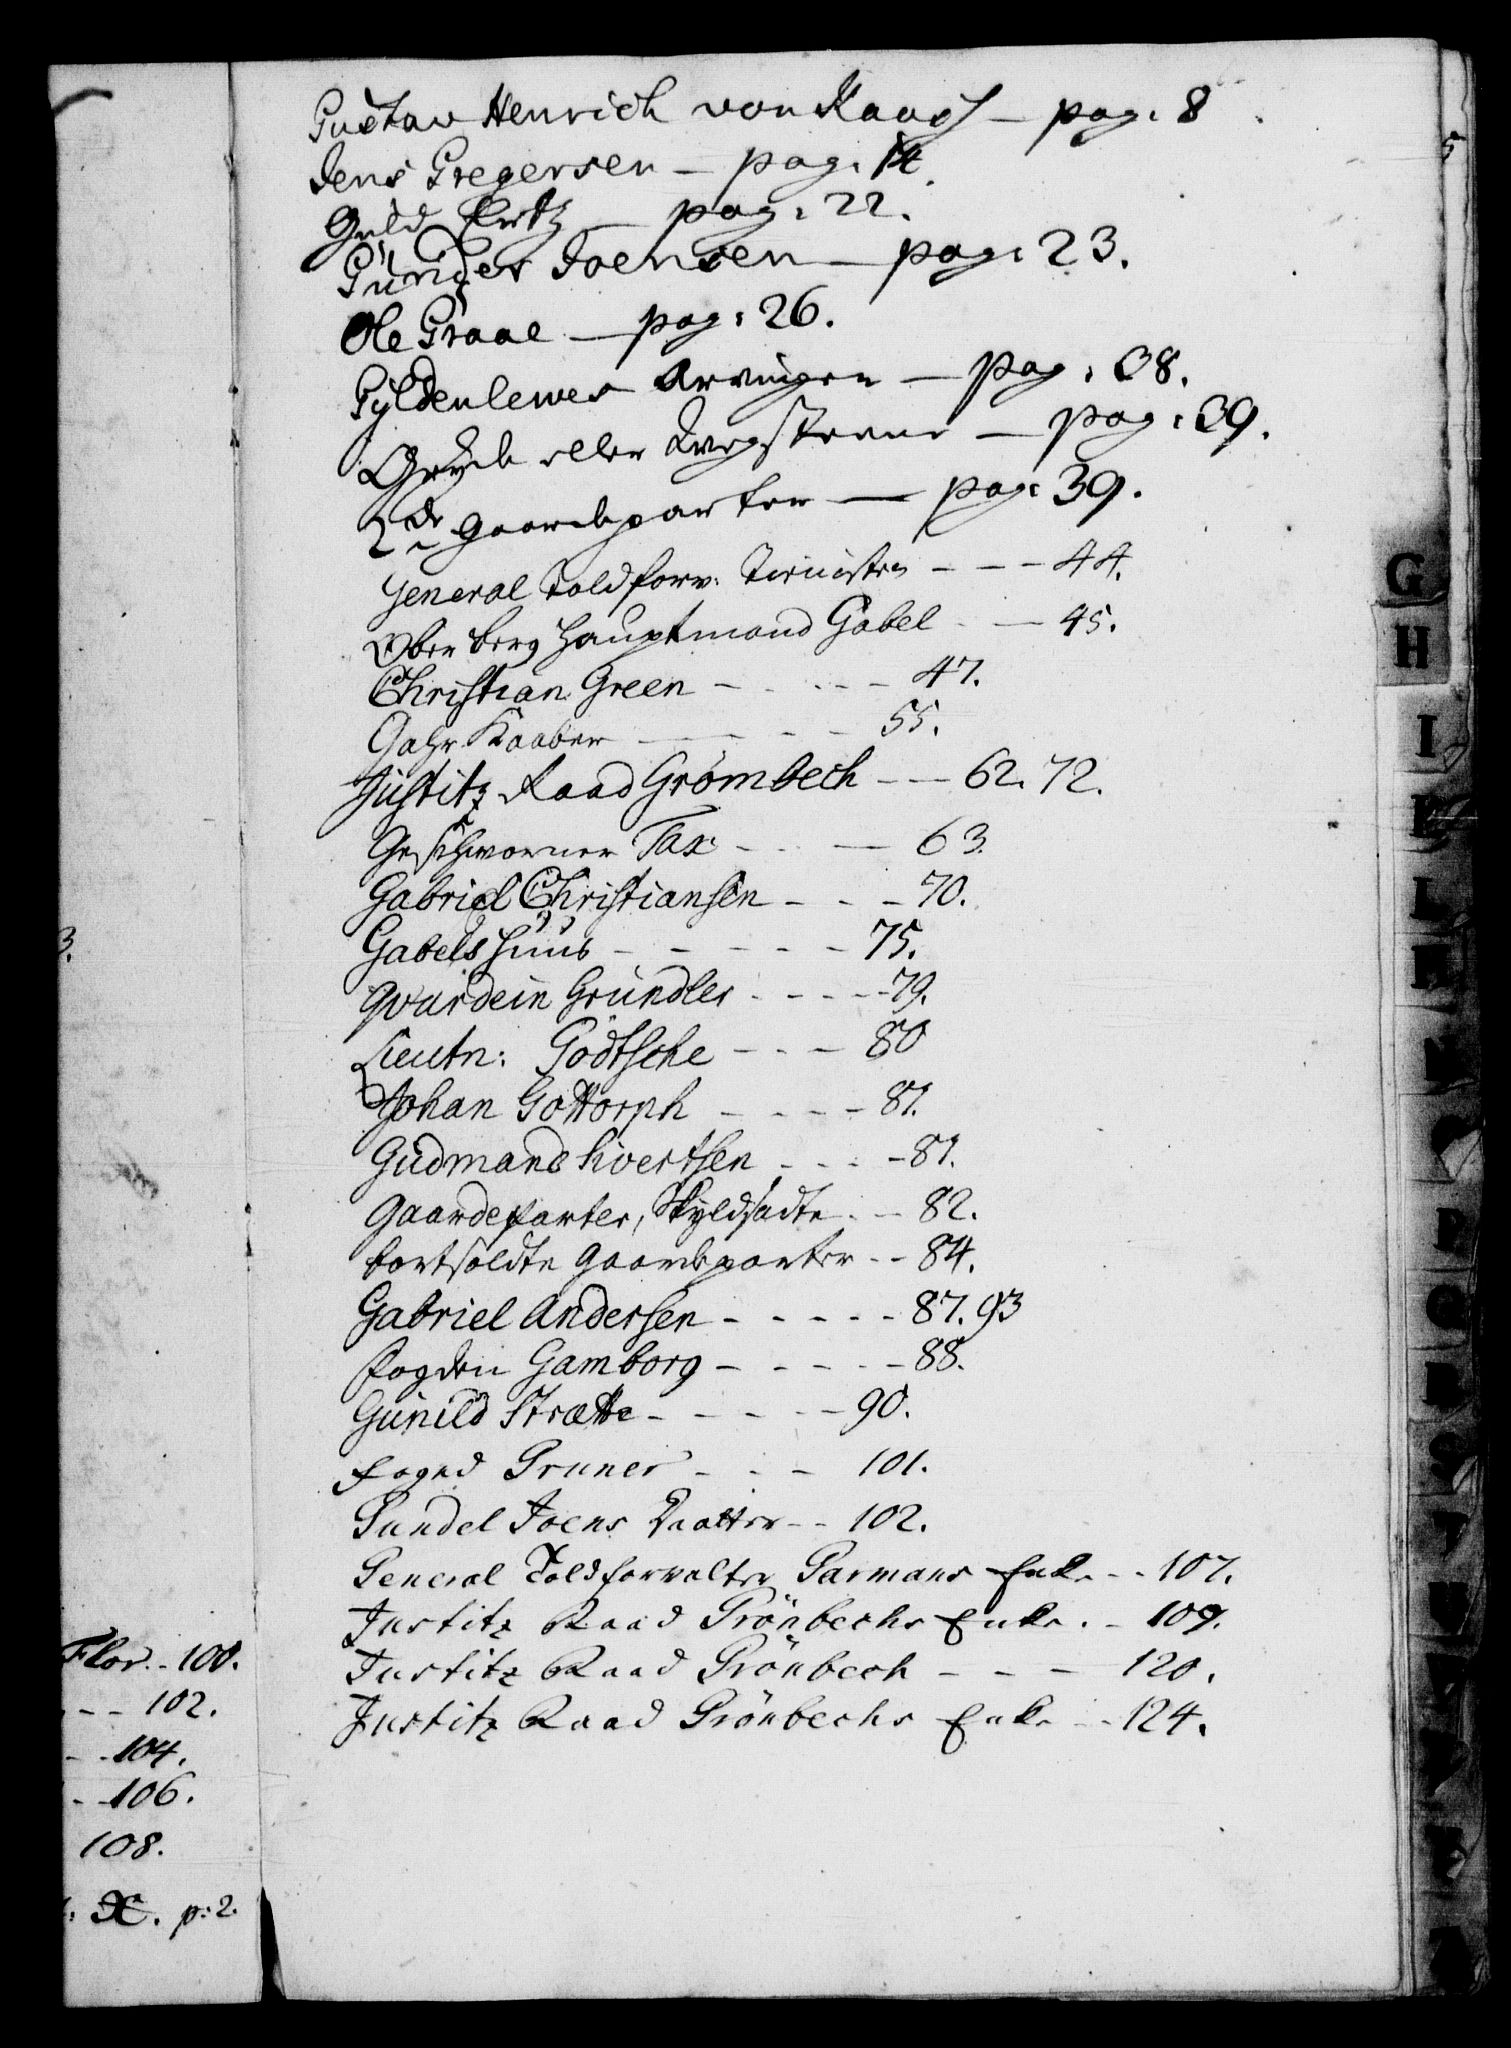 Gustav Henrich von Kaag — pag: 8
Jens Gregersen — pag: 14.
Guld Ertz — pag: 22.
Joensen — pag: 23.
Ole Graae — pag: 26.
Gyldenlewes Arvinger — pag: 38.
eller — pag: 39.
2de Gaardeparter — pag: 39.
General Toldforv: - - - 44.
Ober berg Hauptmand Gabel - — 45.
Christian Green - - - - - 47.
Gahr Kaaber — - - - 55.
Justitz Raad Grømbech - — 62. 72.
Geschworner Tax: - - — 63.
Gabriel Christiansen - - - 70.
Gabels Huus - - - - - 75.
Gvardein Gründler - - - - 79.
Lieutn: Godtsche - - - 80
Johan Gottorph - - - - 81.
Gudmand Sivertsen - - - - 81.
Gaardeparter, Skyldsadte - - 82.
bortsoldte Gaardeparter - - 84.
Gabriel Andersen - - - - - 87. 93
Fogden Gamborg - - - - - 88.
Gunild Strætte - - - - - 90.
Foged Gruner - - - 101.
Gundel Joens Daatter - - 102.
General Toldforvalter Garmans Enke - - 107.
Justitz Raad Grönbechs Enke. - 109.
Justitz Raad Grönbech - - - 120.
Justitz Raad Grönbechs Enke - - 124.
3.
Flor. - 100.
- - 102.
- - 104.
- - 106.
108.
p: 2.
5
G
H
I